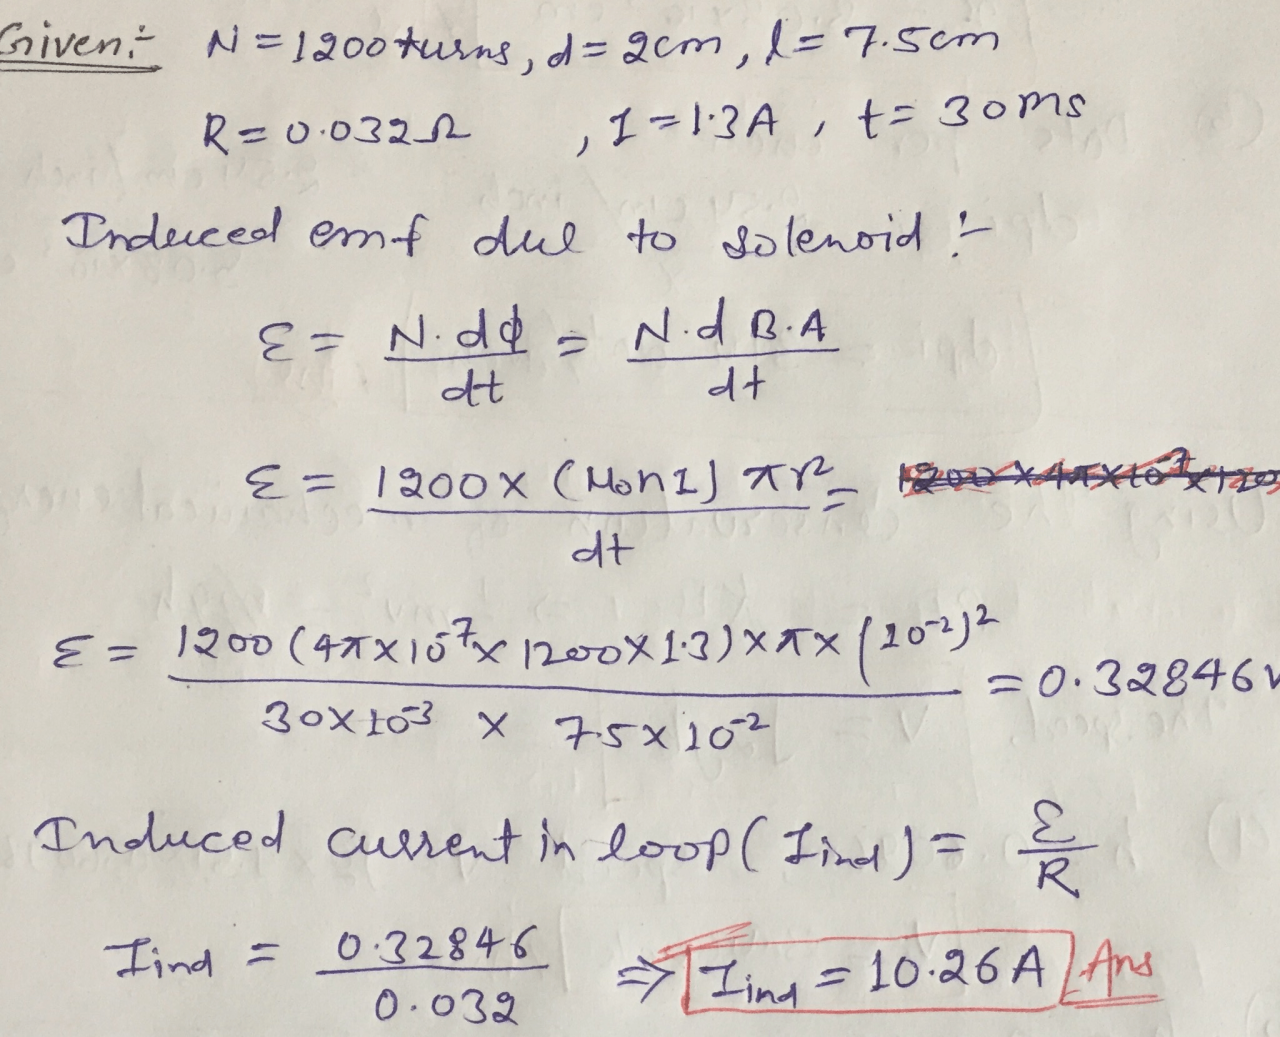 Given:- N = 1200 turns, d = 2cm, l = 7.5cm
R = 0.032Ω , I = 1.3A , t = 30ms
Induced emf due to solenoid :-
ε = N.dϕ/dt = N.d B.A/dt
ε = 1200 × (μ₀nI) πr²/dt =
ε = 1200 (4π×10⁻⁷ × 1200 × 1.3) × π × (10⁻²)² / 30×10⁻³ × 7.5×10⁻² = 0.32846V
Induced current in loop (Iind) = ε/R
Iind = 0.32846/0.032 ⇒ Iind = 10.26A Ans